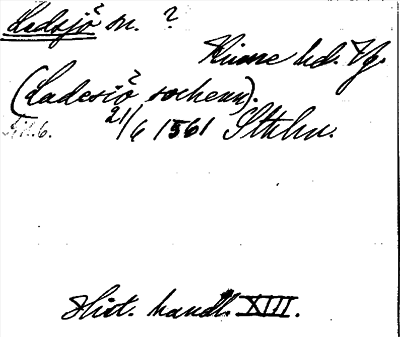 Ladsjö sn. ?
Kinne hd. Vg.
(Ladesiö sochenn).
21/6 1561 Sthlm.
Hist. handl. XIII.